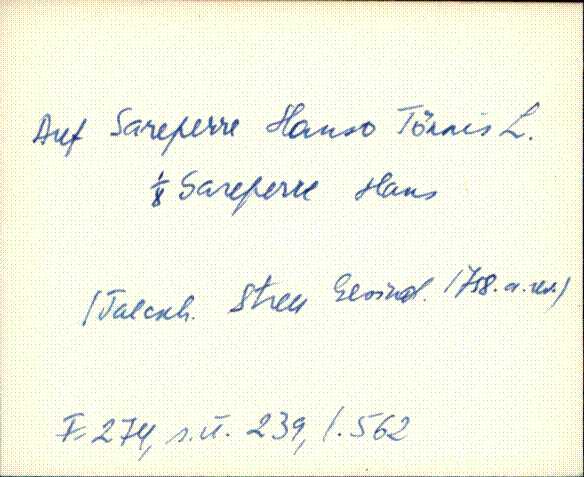 Auf Sareperre Hanso Tönnis L.
1/8 Sareperre Hans
(Talckh. Streu Gesind. 1758. a. rev.)
F. 274, s.ü. 239, l. 562